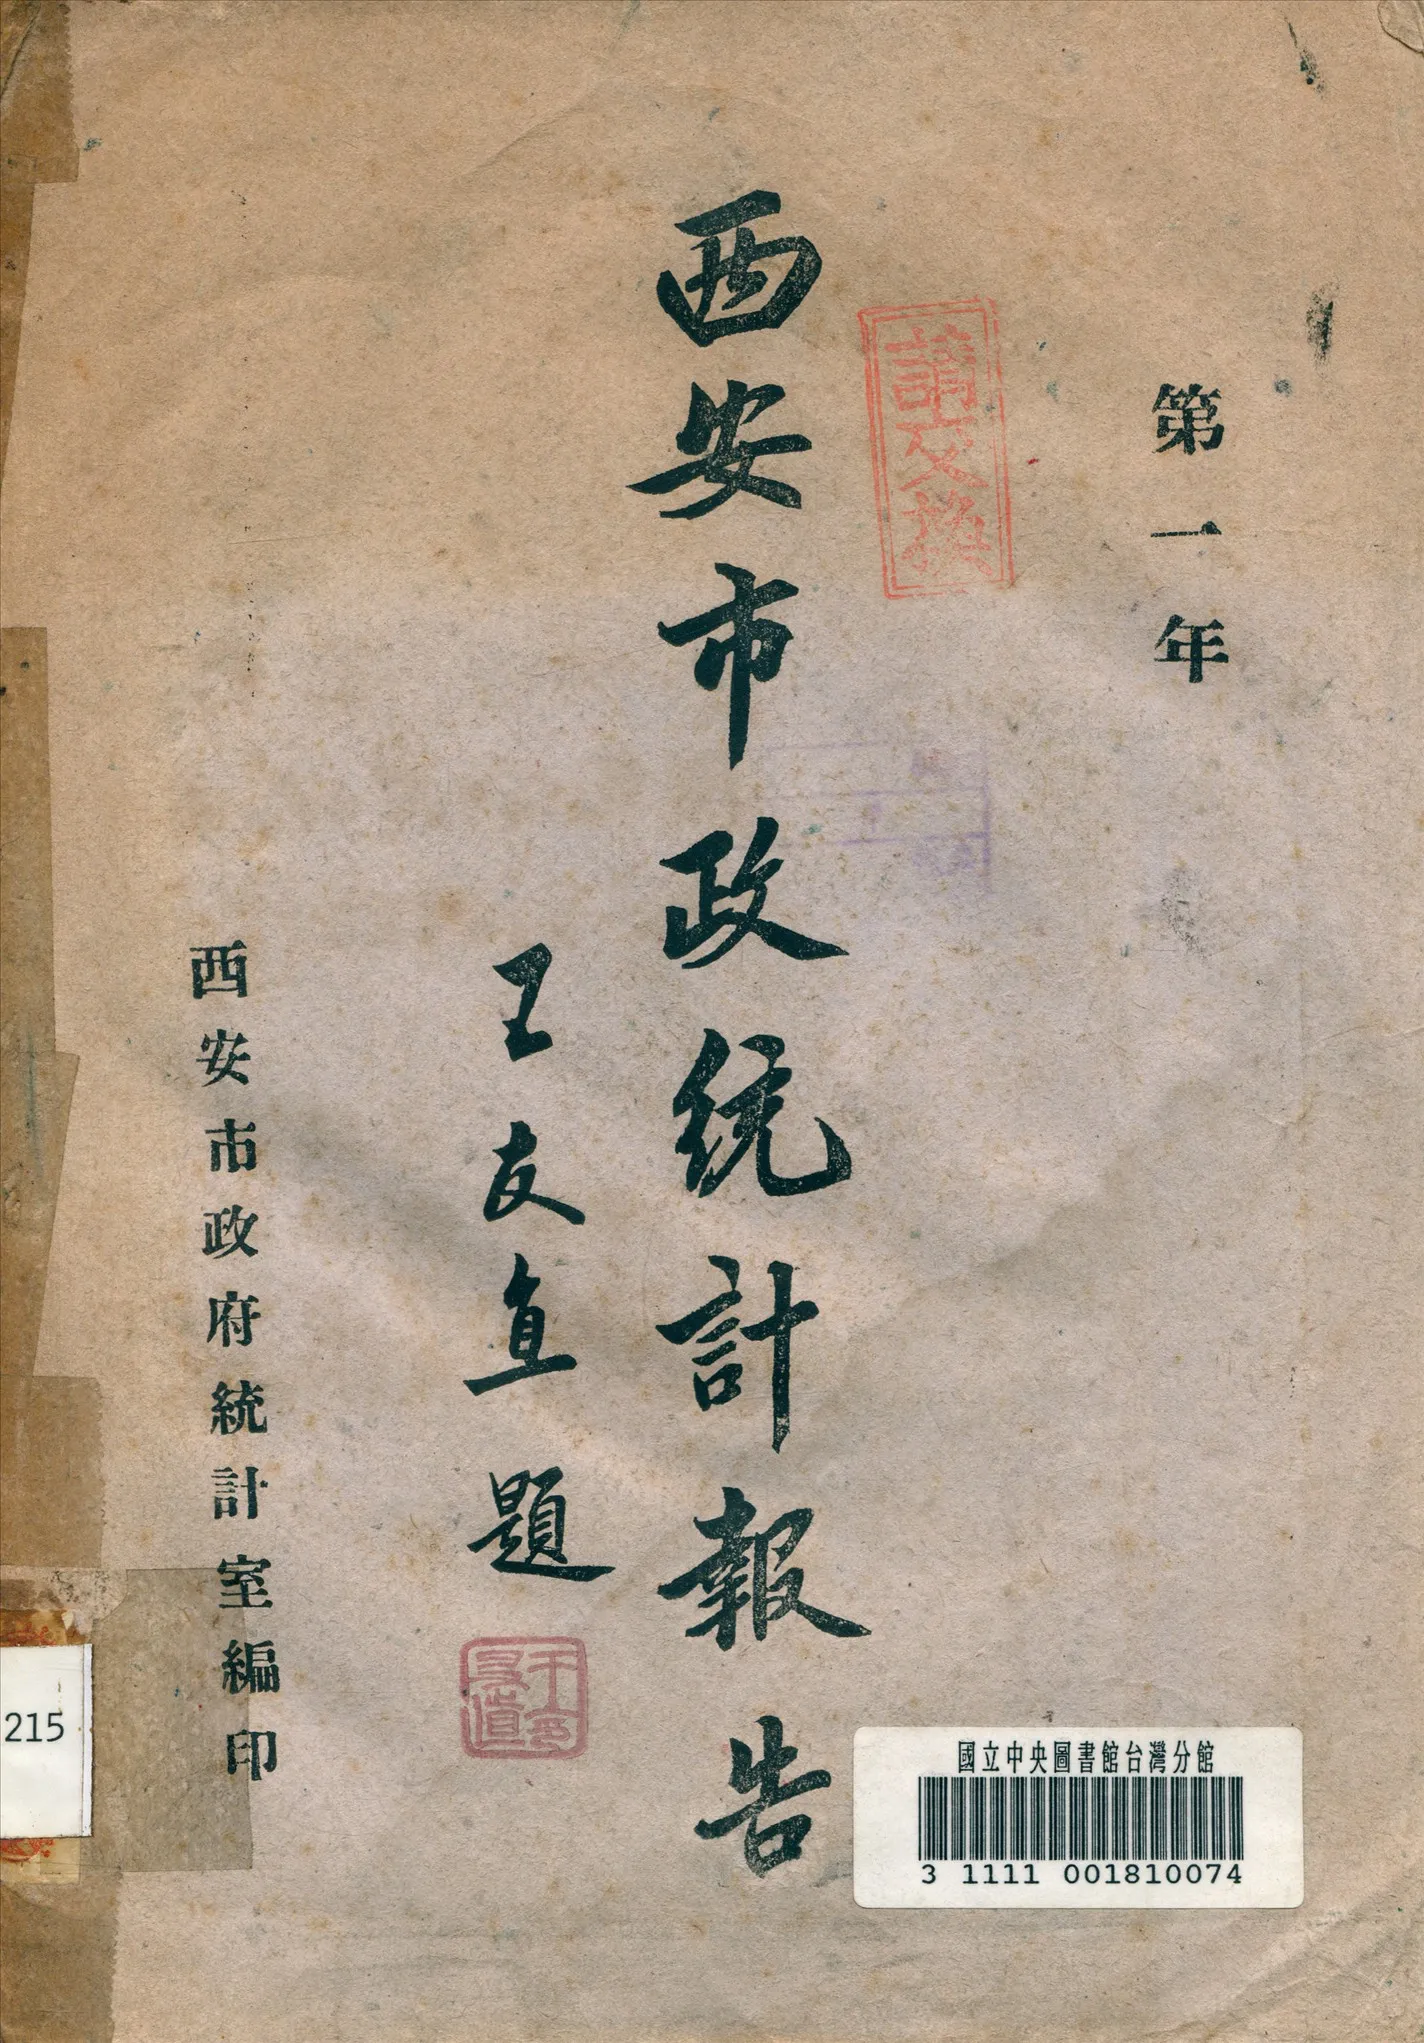 第一年
請交換
西安市政統計報告
王友直題
王友直
西安市政府統計室編印
215
國立中央圖書館台灣分館
3 1111 001810074